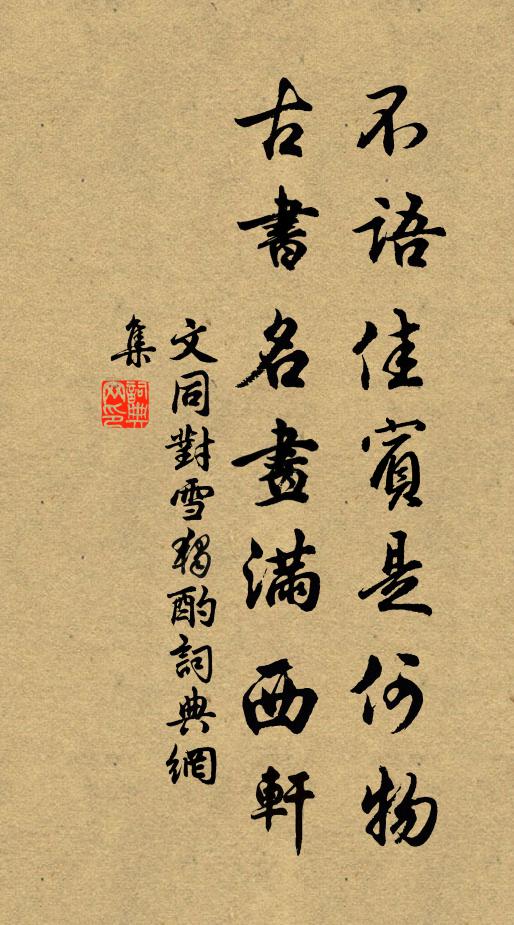 不語佳賓是何物
古書名畫滿西軒
文同對雪獨酌詞典網
集
詞典
網印